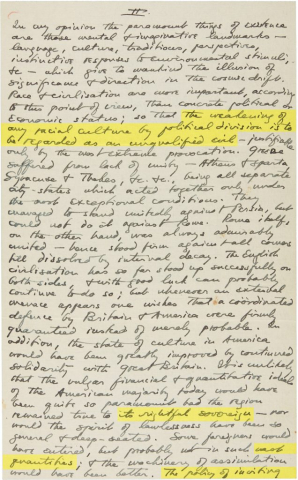 In my opinion the paramount things of existence
are those mental & imaginative landmarks—
language, culture, traditions, perspective,
instinctive responses to environmental stimuli,
&c.— which give to mankind the illusion of
significance & direction in the cosmic drift.
Race & civilisation are more important, according
to this point of view, than concrete political or
economic status; so that the weakening of
any racial culture by political division is to
be regarded as an unqualified evil— justifiable
only by the most extreme provocation. Greece
suffered from lack of unity— Athens & Sparta,
Syracuse & Thebes, &c. &c., being all separate
city-states which acted together only under
the most exceptional conditions. They
managed to stand unitedly against Persia, but
could not do it against Rome. Rome itself,
on the other hand, was always admirably
united— hence stood firm against all comers
till dissolved by internal decay. The English
civilisation has so far stood up successfully on
both sides, & with good luck can probably
continue to do so; but whenever an external
menace appears one wishes that a coördinated
defence by Britain & America were firmly
guaranteed instead of merely probable. In
addition, the state of culture in America
would have been greatly improved by continued
solidarity with Great Britain. It is unlikely
that the vulgar financial & quantitative ideals
of the American majority today would have
been quite so paramount had the region
remained true to its rightful sovereign— nor
would the spirit of lawlessness have been so
general & deep-seated. Some foreigners would
have entered, but probably not in such vast
quantities; & the machinery of assimilation
would have been better. The policy of inviting